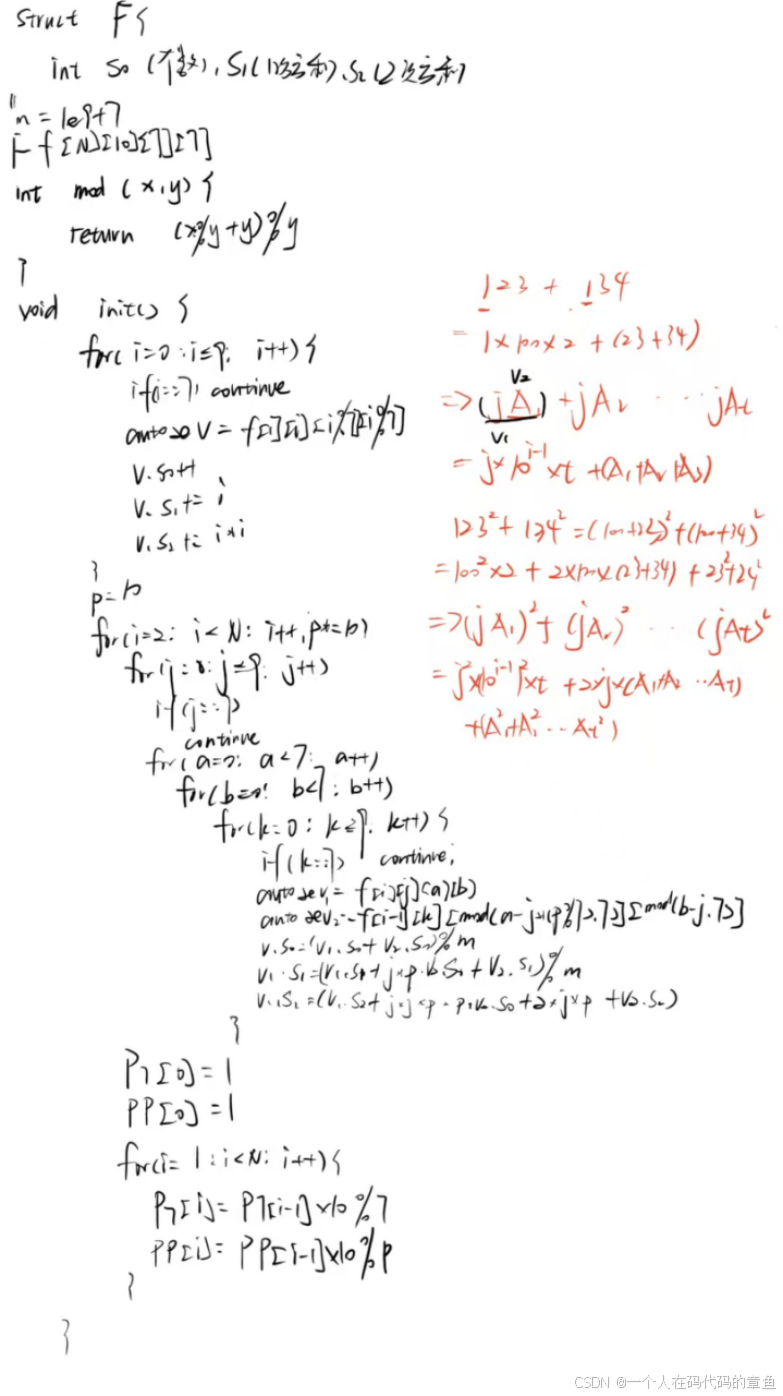 struct F{
int S0 (个数), S1(1次方和), S2(2次方和)
m = 1e9+7
F f[N][10][7][7]
int mod (x,y) {
return (x%y+y)%y
}
void init() {
for( i=0; i≤9; i++) {
if(i==7) continue
auto &v = f[1][i][i%7][i%7]
v.s0++
v.s1 += i
v.s2 += i*i
}
p=10
for(i=2; i<N; i++, p*=10)
for(j=0; j≤9; j++)
if(j==7)
continue
for(a=0; a<7; a++)
for(b=0; b<7; b++)
for(k=0; k≤9; k++) {
if(k==7) continue;
auto &v1= f[i][j][a][b]
auto &v2=f[i-1][k][mod(a-j*(p%7),7)][mod(b-j,7)]
v.s0=(v1.s0+v2.s0)%m
v1.s1=(v1.s0+j*p.v2.s0+v2.s1)%m
v1.s2=(v1.s2+j*j*p*p*v2.s0+2*j*p+v2.s2)
}
P7[0]=1
PP[0]=1
for(i=1; i<N; i++) {
P7[i]=P7[i-1]×10%7
PP[i]=PP[i-1]×10%p
}
}
123 + 134
= 1×100×2 + (23+34)
v2
=> (jA1) + jA2 ... jAt
v1
= j×10^{i-1}×t + (A1+A2+A3)
123²+134²=(100+23)²+(100+34)²
=100²×2 + 2×100×(23+34) + 23²+24²
=>(jA1)²+(jA2)² ... (jAt)²
= j²×(10^{i-1})²×t + 2×j×(A1+A2 ... At)
+(A1²+A2² ... At²)
CSDN @一个人在码代码的章鱼